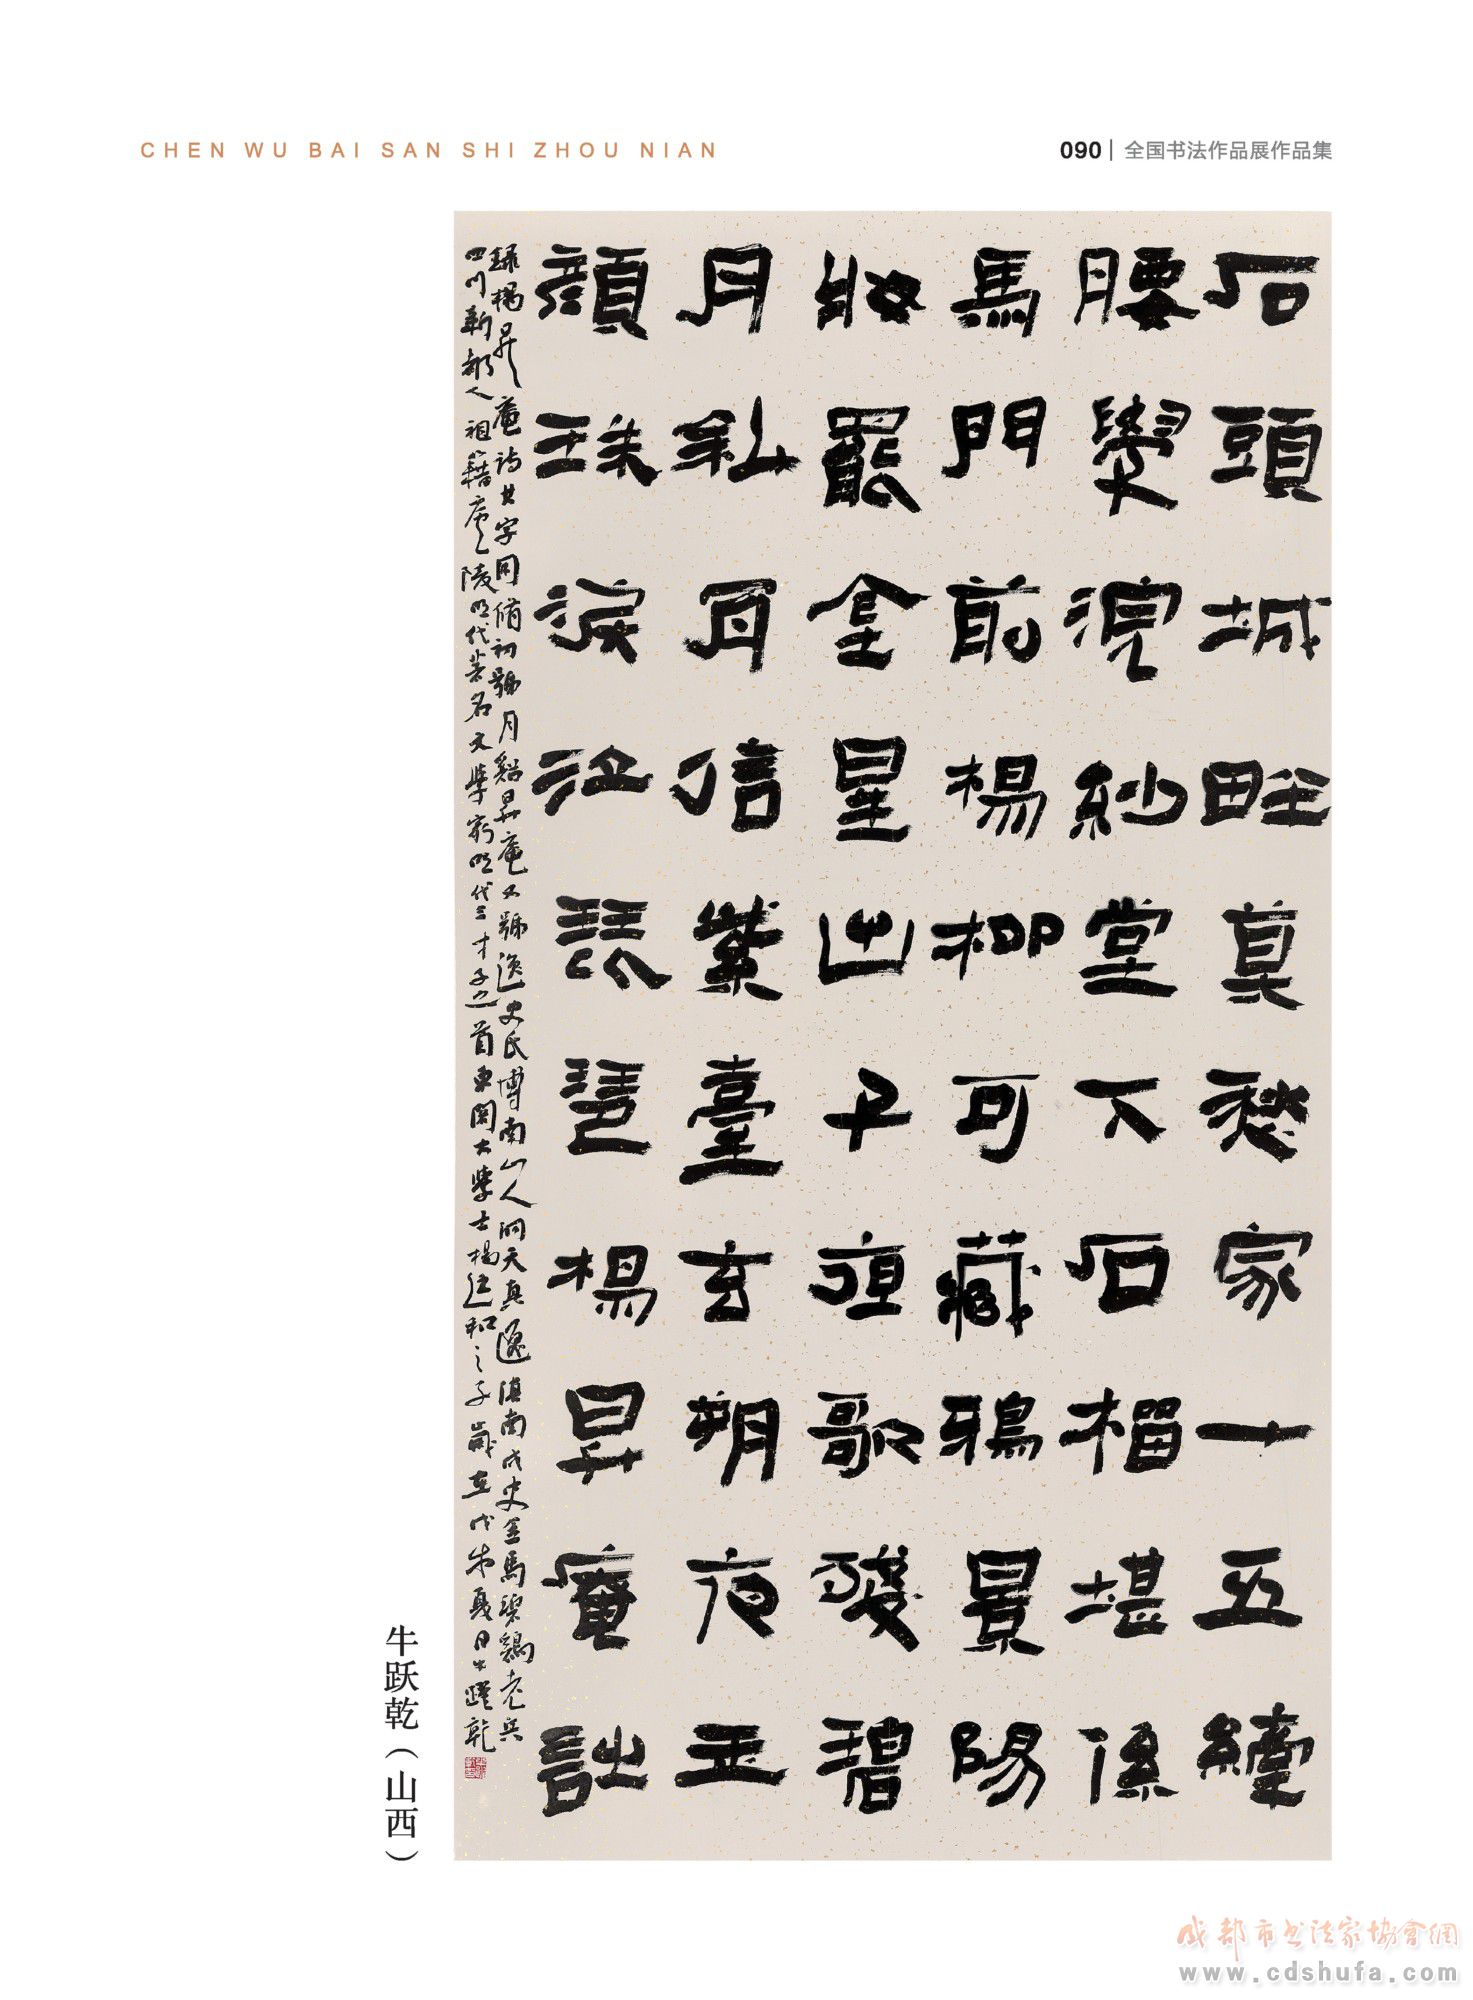 CHEN WU BAI SAN SHI ZHOU NIAN
090 | 全国书法作品展作品集
石頭城畔莫愁家一五纖
腰學浣紗堂下石榴堪係
馬門前楊柳可藏鴉景陽
妝罷金星出子夜歌殘碧
月私月信紫臺玄朔夜玉
顏珠淚泣琵琶楊昇庵詩
錄楊昇庵詩其字用脩初號月谿昇庵又號逸史氏博南山人洞天真逸滇南戍史金馬碧鷄老兵
四川新都人祖籍廬陵明代著名文學家明代三才子之首東閣大學士楊廷和之子歲在戊戌夏日牛躍乾
牛跃乾（山西）
成都市书法家协會網
www.cdshufa.com